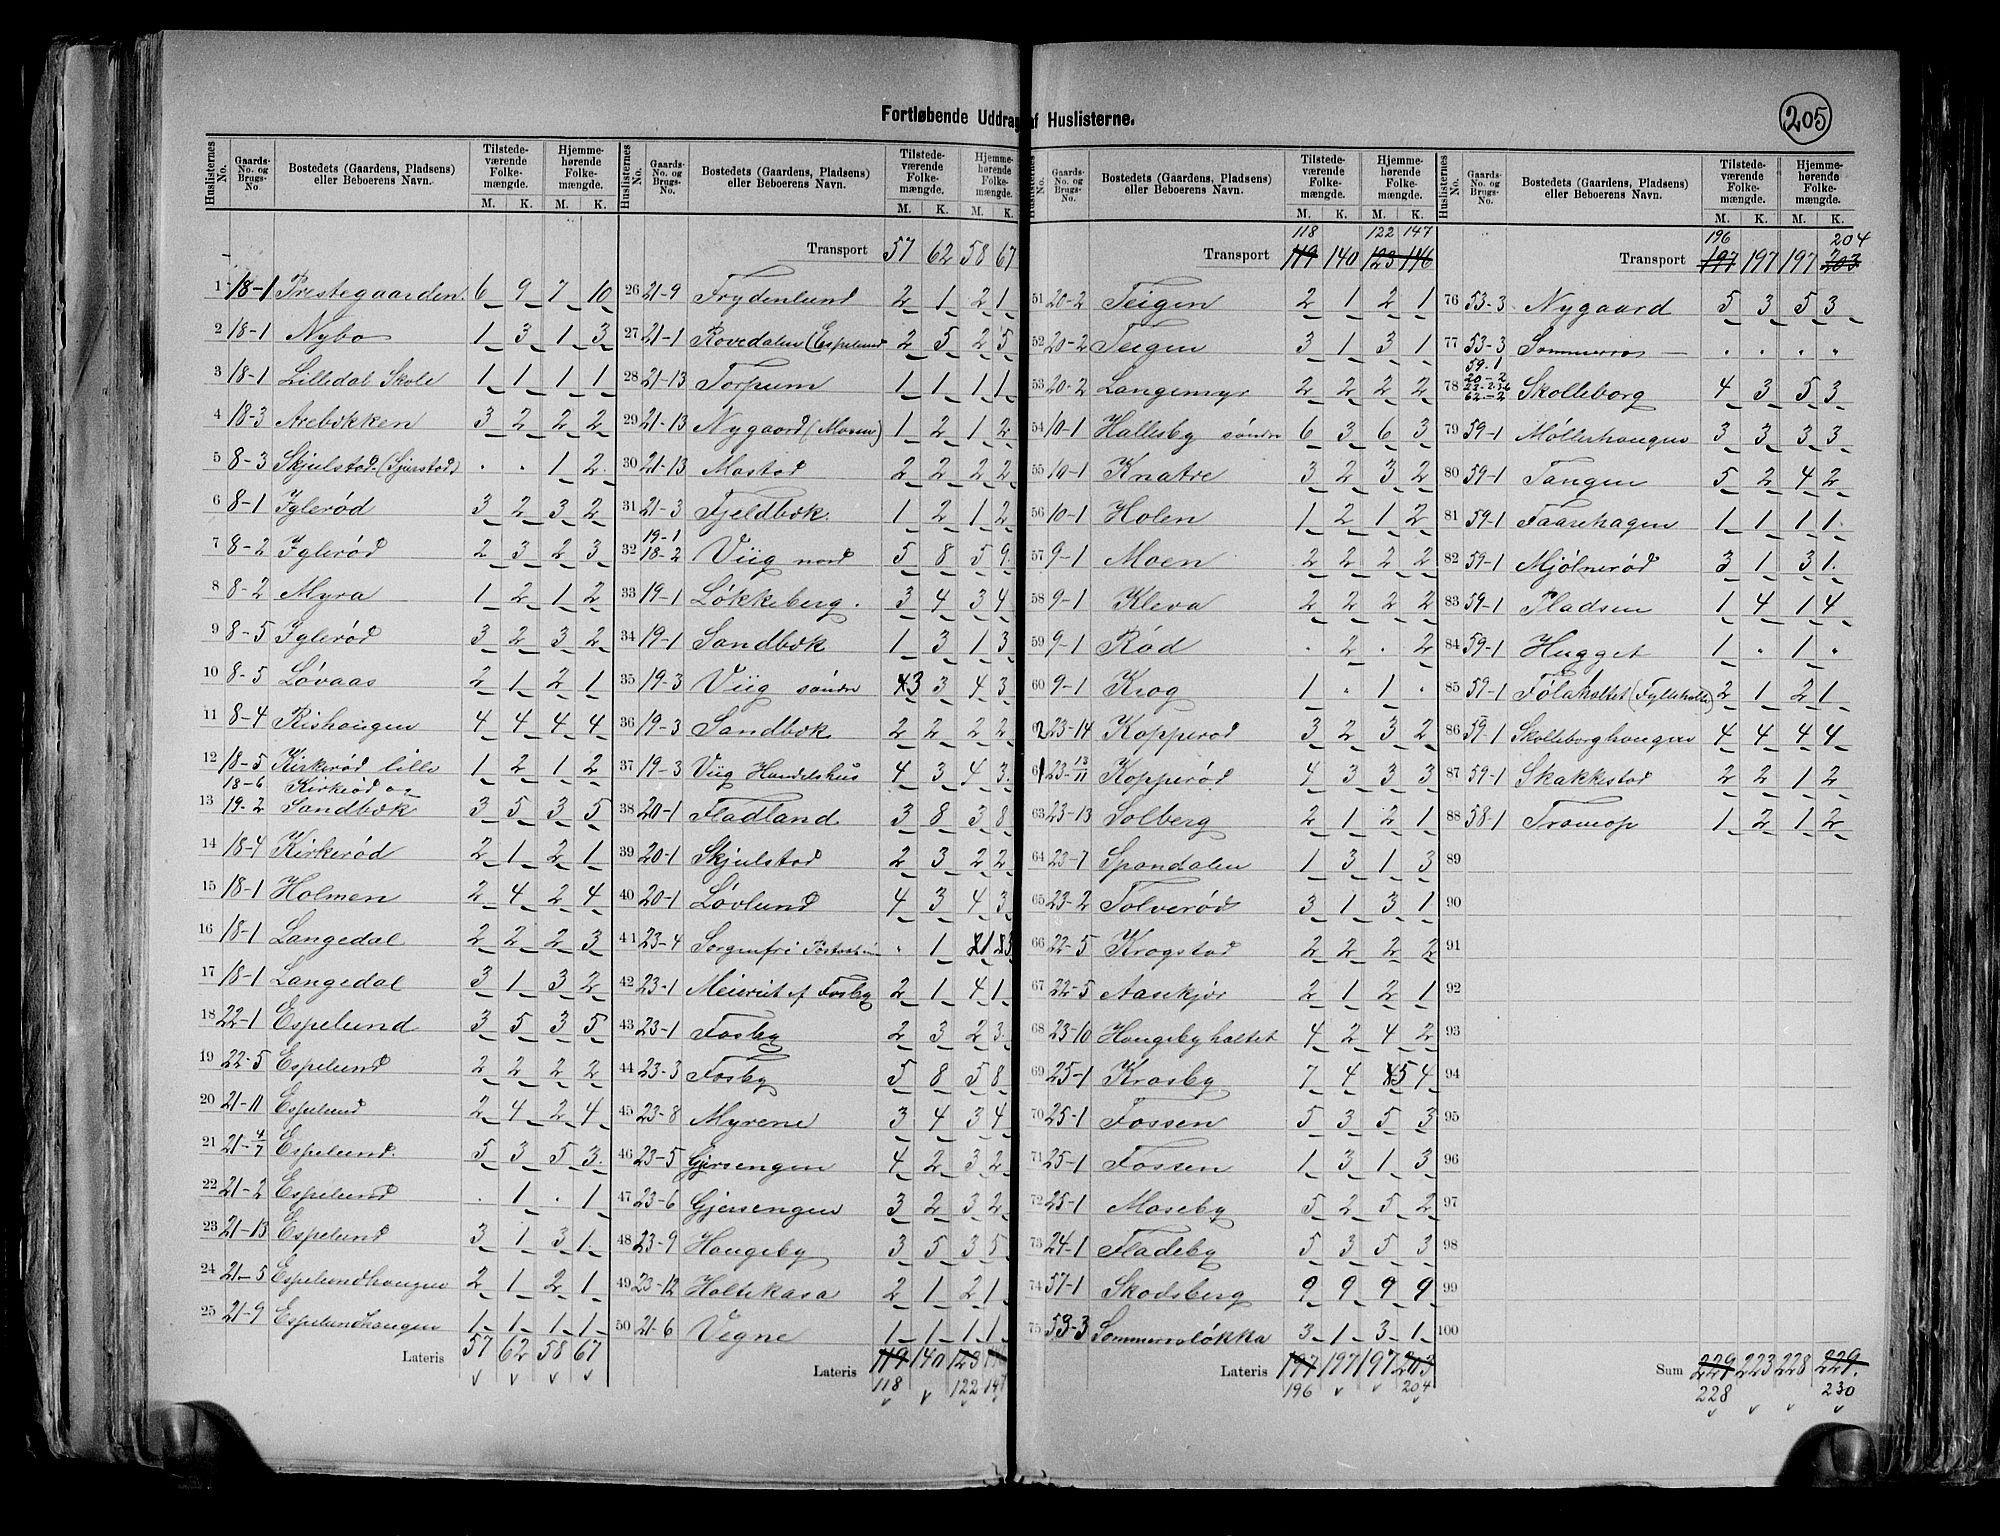 Fortløbende Uddrag af Huslisterne.
205
Huslisternes No. Gaards-No. og Brugs-No. Bostedets (Gaardens, Pladsens) eller Beboerens Navn. Tilstedeværende Folkemængde. M. K. Hjemmehørende Folkemængde. M. K.
1 18-1 Prestegaarden 6 9 7 10
2 18-1 Nybo 1 3 1 3
3 18-1 Lilledal Skole 1 1 1 1
4 18-3 Arebækken 3 2 2 2
5 8-3 Skjulstad (Sjurstad) . . 1 2
6 8-1 Iglerød 3 2 3 2
7 8-2 Iglerød 2 3 2 3
8 8-2 Myra 1 2 1 2
9 8-5 Iglerød 3 2 3 2
10 8-5 Løvaas 2 1 2 1
11 8-4 Rishaugen 4 4 4 4
12 18-5 Kirkerød lille 1 2 1 2
18-6 Kirkerød og
13 19-2 Sandbæk 3 5 3 5
14 18-4 Kirkerød 2 1 2 1
15 18-1 Holmen 2 4 2 4
16 18-1 Langedal 2 2 2 3
17 18-1 Langedal 3 1 3 2
18 22-1 Espelund 3 5 3 5
19 22-5 Espelund 2 2 2 2
20 21-11 Espelund 2 4 2 4
21 21-4/7 Espelund. 5 3 5 3
22 21-2 Espelund . 1 . 1
23 21-13 Espelund 3 1 3 1
24 21-5 Espelundhaugen 2 1 2 1
25 21-9 Espelundhaugen 1 1 1 1
Lateris 57 62 58 67
Huslisternes No. Gaards-No. og Brugs-No. Bostedets (Gaardens, Pladsens) eller Beboerens Navn. Tilstedeværende Folkemængde. M. K. Hjemmehørende Folkemængde. M. K.
Transport 57 62 58 67
26 21-9 Frydenlund 2 1 2 1
27 21-1 Rovedalen (Espelund 2 5 2 5
28 21-13 Torpum 1 1 1 1
29 21-13 Nygaard (Moen) 1 2 1 2
30 21-13 Mastad 2 2 2 2
31 21-3 Fjeldbæk. 1 2 1 2
19-1
32 18-2 Viig nord 5 8 5 9
33 19-1 Løkkeberg. 3 4 3 4
34 19-1 Sandbæk 1 3 1 3
35 19-3 Viig søndre 4 3 3 4 3
36 19-3 Sandbæk 2 2 2 2
37 19-3 Viig Handelshus 4 3 4 3
38 20-1 Fladland 3 8 3 8
39 20-1 Skjulstad 2 3 2 2
40 20-1 Løvlund 4 3 4 3
41 23-4 Sorgenfri . 1 1 3
42 23-1 Meieriet af Fosby 2 1 4 1
43 23-1 Fosby 2 3 2 3
44 23-3 Fosby 5 8 5 8
45 23-8 Myrene 3 4 3 4
46 23-5 Gjersengen 4 2 3 2
47 23-6 Gjersengen 3 2 3 2
48 23-9 Haugeby 3 5 3 5
49 23-12 Holtekasa 2 1 2 1
50 21-6 Vegne 1 1 1 1
Lateris 119 140 123 146
118 122 147
Huslisternes No. Gaards-No. og Brugs-No. Bostedets (Gaardens, Pladsens) eller Beboerens Navn. Tilstedeværende Folkemængde. M. K. Hjemmehørende Folkemængde. M. K.
118 122 147
Transport 119 140 123 146
51 20-2 Teigen 2 1 2 1
52 20-2 Teigen 3 1 3 1
53 20-2 Langemyr 2 2 2 2
54 10-1 Hallesby søndre 6 3 6 3
55 10-1 Knatre 3 2 3 2
56 10-1 Holen 1 2 1 2
57 9-1 Moen 2 2 2 2
58 9-1 Kleva 2 2 2 2
59 9-1 Rød . 2 . 2
60 9-1 Krog 1 . 1 .
62 23-14 Kopperød 3 2 3 2
61 23-13/11 Kopperød 4 3 3 3
63 23-13 Solberg 2 1 2 1
64 23-7 Spondalen 1 3 1 3
65 23-2 Tolverød 3 1 3 1
66 22-5 Krogstad 2 2 2 2
67 22-5 Aaskjør 2 1 2 1
68 23-10 Haugebyholtet 4 2 4 2
69 25-1 Krosby 7 4 5 4
70 25-1 Fossen 5 3 5 3
71 25-1 Fossen 1 3 1 3
72 25-1 Moseby 5 2 5 2
73 24-1 Fladeby 5 3 5 3
74 57-1 Skodsberg 9 9 9 9
75 53-3 Sommeroløkka 3 1 3 1
Lateris 197 197 197 203
196 204
Huslisternes No. Gaards-No. og Brugs-No. Bostedets (Gaardens, Pladsens) eller Beboerens Navn. Tilstedeværende Folkemængde. M. K. Hjemmehørende Folkemængde. M. K.
196 204
Transport 197 197 197 203
76 53-3 Nygaard 5 3 5 3
77 53-3 Sommerro — . . . "
59-1
20-2
78 62-2 Skolleborg 4 3 5 3
79 59-1 Møllerhaugen 3 3 3 3
80 59-1 Tangen 5 2 4 2
81 59-1 Faarehagen 1 1 1 1
82 59-1 Mjølnerød 3 1 3 1
83 59-1 Pladsen 1 4 1 4
84 59-1 Hugget 1 . 1 "
85 59-1 Følaholtet (Fyldeholte) 2 1 2 1
86 59-1 Skolleborghaugen 4 4 4 4
87 59-1 Skakkestad 2 2 1 2
88 58-1 Tramop 1 2 1 2
89
90
91
92
93
94
95
96
97
98
99
100
Sum 229 223 228 229
228 230